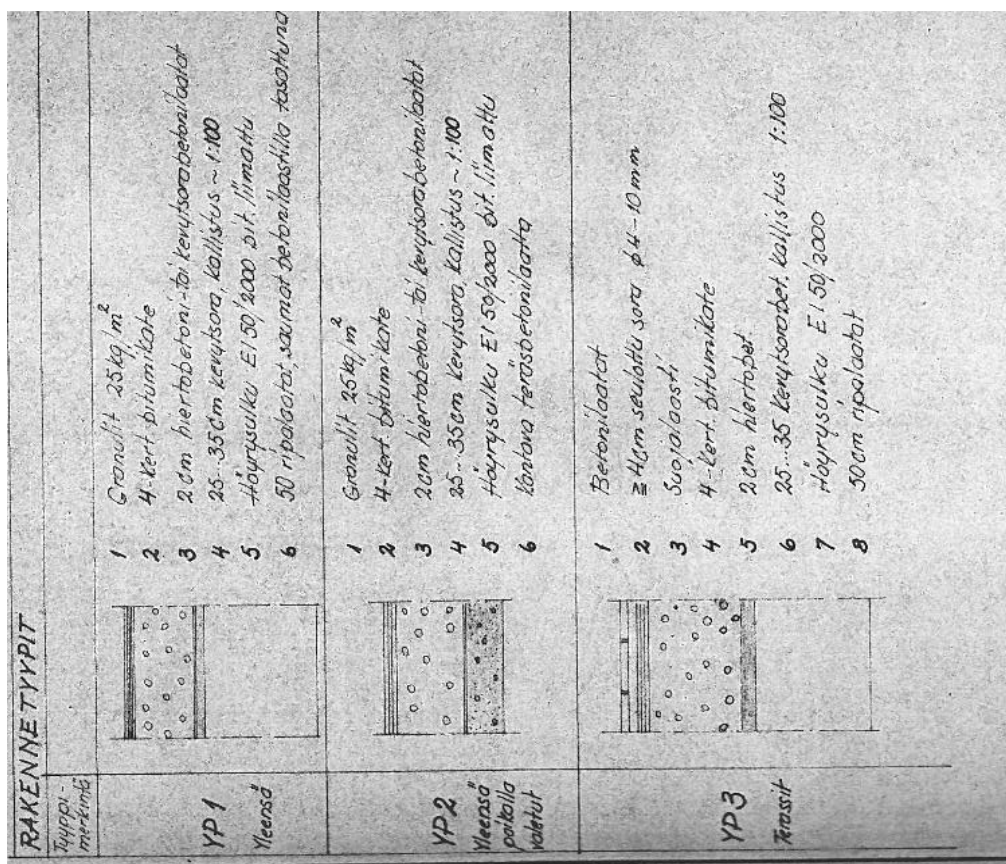 RAKENNETYYPIT
Tyyppi-
merkintä
YP1
Yleensä
1 Granulit 25kg/m²
2 4-kert. bitumikate
3 2cm hiertobetoni- tai kevytsorabetonilaatat
4 25..35cm kevytsora, kallistus ~ 1:100
5 Höyrysulku EI 50/2000 bit. liimattu
6 50 ripalaatat, saumat betonilaastilla tasattuna
YP2
Yleensä
paikalla
valetut
1 Granulit 25kg/m²
2 4-kert. bitumikate
3 2cm hiertobetoni- tai kevytsorabetonilaatat
4 25..35cm kevytsora, kallistus ~ 1:100
5 Höyrysulku EI 50/2000 bit. liimattu
6 Kantava teräsbetonilaatta
YP3
Terassit
1 Betonilaatat
2 ≥ 4cm seulottu sora ø4-10mm
3 Suojalaasti
4 4-kert. bitumikate
5 2cm hiertobet.
6 25..35 kevytsorabet. kallistus 1:100
7 Höyrysulku EI 50/2000
8 50cm ripalaatat